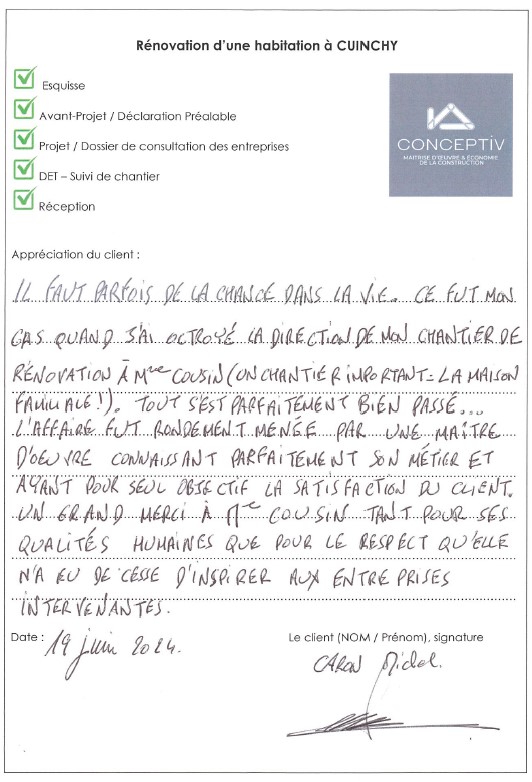 Rénovation d'une habitation à CUINCHY
Esquisse
Avant-Projet / Déclaration Préalable
Projet / Dossier de consultation des entreprises
DET – Suivi de chantier
Réception
CONCEPTIV
MAITRISE D'ŒUVRE & ÉCONOMIE
DE LA CONSTRUCTION
Appréciation du client :
IL FAUT PARFOIS DE LA CHANCE DANS LA VIE. CE FUT MON
CAS QUAND J'AI OCTROYÉ LA DIRECTION DE MON CHANTIER DE
RÉNOVATION À Mme COUSIN (UN CHANTIER IMPORTANT = LA MAISON
FAMILIALE !). TOUT S'EST PARFAITEMENT BIEN PASSÉ...
L'AFFAIRE FUT RONDEMENT MENÉE PAR UNE MAÎTRE
D'OEUVRE CONNAISSANT PARFAITEMENT SON MÉTIER ET
AYANT POUR SEUL OBJECTIF LA SATISFACTION DU CLIENT.
UN GRAND MERCI À Mme COUSIN TANT POUR SES
QUALITÉS HUMAINES QUE POUR LE RESPECT QU'ELLE
N'A EU DE CESSE D'INSPIRER AUX ENTREPRISES
INTERVENANTES.
Date : 19 juin 2024.
Le client (NOM / Prénom), signature
CARON Michel.